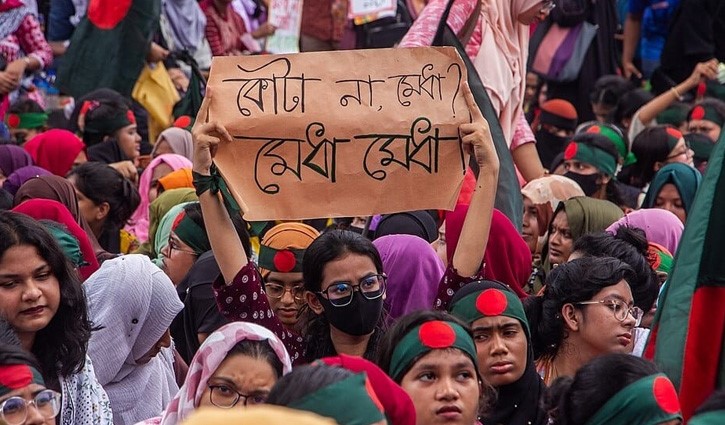 কৌটা না, মেধা?
মেধা মেধা